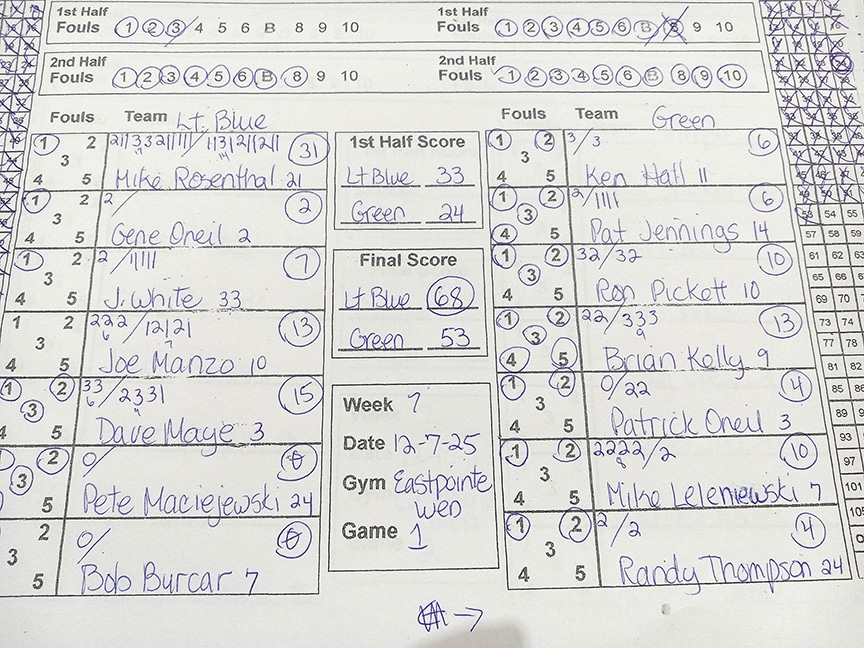 1st Half
Fouls 1 2 3 4 5 6 B 8 9 10
1st Half
Fouls 1 2 3 4 5 6 B 8 9 10
2nd Half
Fouls 1 2 3 4 5 6 B 8 9 10
2nd Half
Fouls 1 2 3 4 5 6 B 8 9 10
Fouls Team Lt. Blue
1 2 3 4 5
31
Mike Rosenthal 21
1 2 3 4 5
2/ 2
Gene Oneil 2
1 2 3 4 5
2/11111 7
J. White 33
1 2 3 4 5
222/12121 13
6 7
Joe Manzo 10
1 2 3 4 5
33/2331 15
6 9
Dave Maye 3
2 3 5
0/ 0
Pete Maciejewski 24
2 3 5
0/ 0
Bob Burcar 7
1st Half Score
Lt Blue 33
Green 24
Final Score
Lt Blue 68
Green 53
Week 7
Date 12-7-25
Gym Eastpointe
wen
Game 1
Fouls Team Green
1 2 3 4 5
3/3 6
Ken Hall 11
1 2 3 4 5
2/1111 6
Pat Jennings 14
1 2 3 4 5
32/32 10
Ron Pickett 10
1 2 3 4 5
22/333 13
9
Brian Kelly 9
1 2 3 4 5
0/22 4
Patrick Oneil 3
1 2 3 4 5
2222/2 10
8
Mike Leleniewski 7
1 2 3 4 5
2/2 4
Randy Thompson 24
53 54 55
57 58 59
61 62 63
65 66
69 70
73 74
77 78
81 82
85 86
89
93
97
101